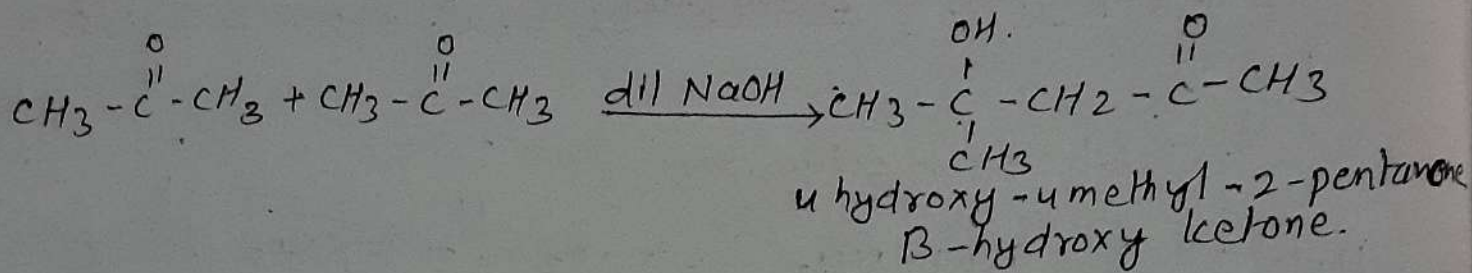 O O OH. O
CH3 - C - CH3 + CH3 - C - CH3 dil NaOH → CH3 - C - CH2 - C - CH3
CH3
4 hydroxy - 4 methyl - 2 - pentanone
B - hydroxy ketone.